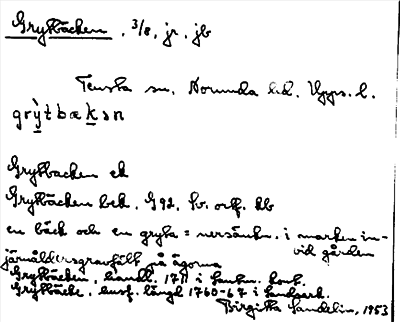 Grytbäcken, 3/8, jr, jb
Tensta sn, Norunda hd. Upps. l.
grỳtbækən
Grytbacken ek
Grytbäcken bek. G92, Sv. ortf. kb
en bäck och en gryta = nersänkn. i marken in-
vid gården
järnåldersgravfält på ägorna
Grytbäcken, handl. 1711 i Lantm. kont.
Grytbäcke, husf. längd 1760-67 i Landsark.
Birgitta Sandelin, 1953